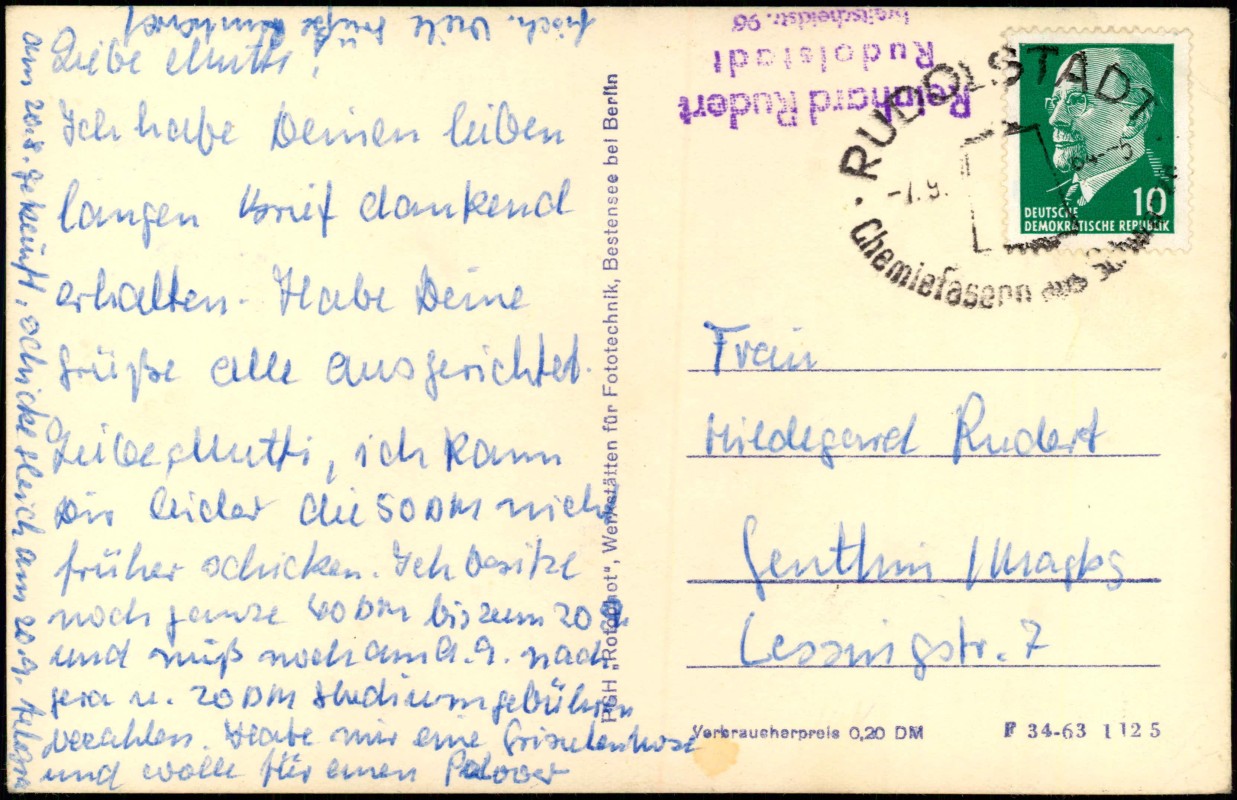 Liebe Mutti!
Ich habe Deinen lieben
langen Brief dankend
erhalten. Habe Deine
Grüße alle ausgerichtet.
Liebe Mutti, ich kann
Dir leider die 50 DM nicht
früher schicken. Ich besitze
noch ganze 40 DM bis zum 20.9.
und muß noch am 9.9. nach
Gera u. 20 DM Studiumgebühren
bezahlen. Habe mir eine
und Wolle für einen
am 20.8. gekauft, schicke gleich am 20.9.
Viele Grüße
PGH „Rotophot“, Werkstätten für Fototechnik, Bestensee bei Berlin
Reinhard Rudert
Rudolstadt
RUDOLSTADT
-7.9.64-5
Chemiefasern aus
10
DEUTSCHE
DEMOKRATISCHE REPUBLIK
Frau
Hildegard Rudert
Genthin / Magdbg
Lessingstr. 7
Verbraucherpreis 0,20 DM
F 34-63 1125